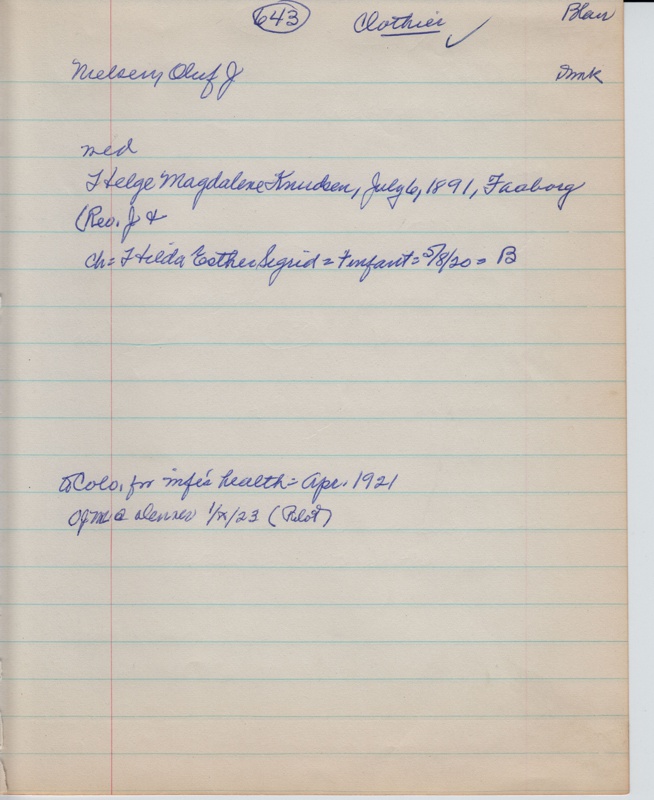 643 Clothier ✓ Blair
Nielsen, Oluf J Dmk
med
Helge Magdalene Knudsen, July 6, 1891, Faaborg
(Rev. J &
ch = Hilda Esther Sigrid = + infant = 5/8/20 = B
to Colo. for wife's health = Apr. 1921
OJM @ Denver 1/ /23 (Pilot)